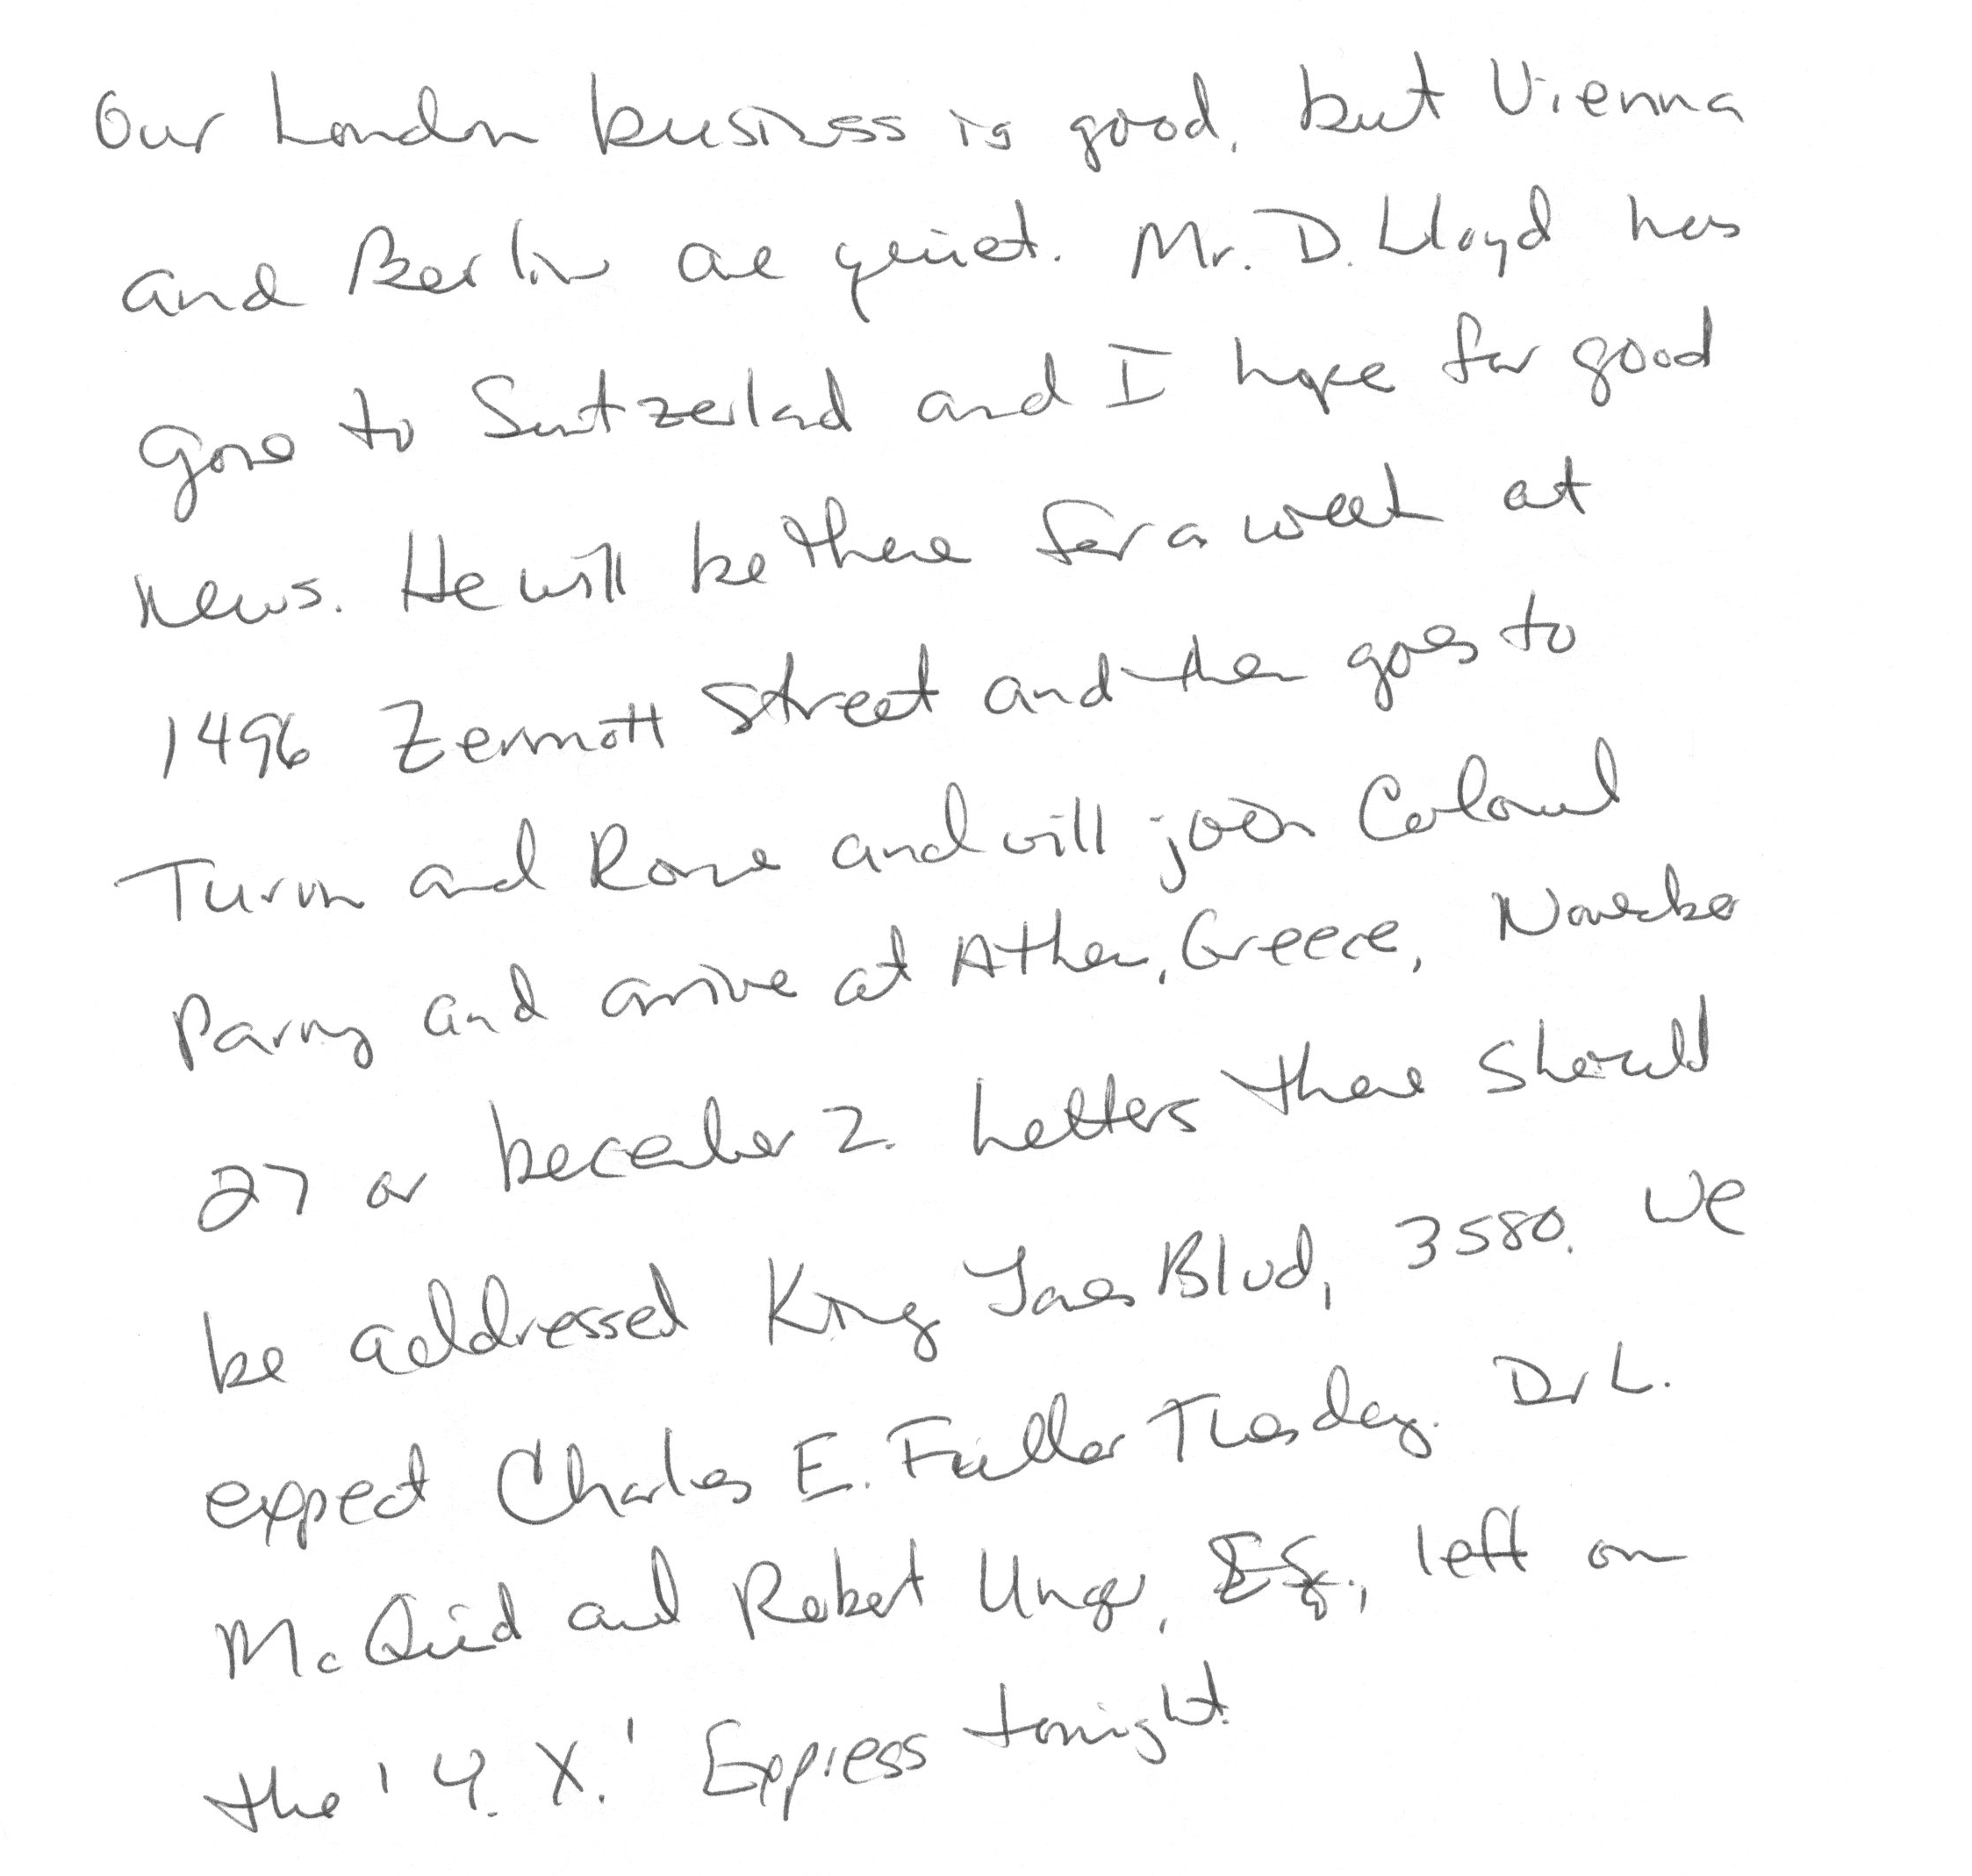 Our London business is good, but Vienna
and Berlin are quiet. Mr. D. Lloyd has
gone to Switzerland and I hope for good
news. He will be there for a week at
1496 Zermott Street and then goes to
Turin and Rome and will join Colonel
Parry and arrive at Athens, Greece, November
27 or December 2. Letters there should
be addressed King James Blvd, 3580. We
expect Charles E. Fuller Tuesday. Dr L.
McQuid and Robert Unger, Esq., left on
the 'Y. X.' Express tonight.